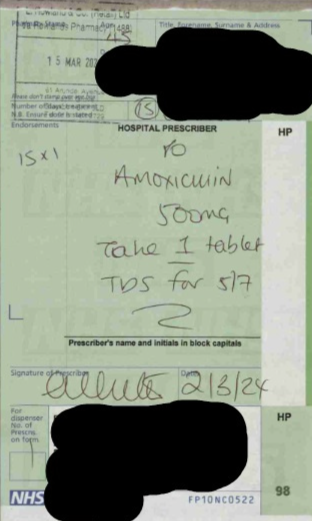 Pharmacy Stamp
Age
Title, Forename, Surname & Address
Rowlands Pharmacy (488)
15 MAR 202
Please don't stamp over age box
Number of days' treatment
N.B. Ensure dose is stated
15
Endorsements
HOSPITAL PRESCRIBER
HP
15 x 1
PO
AMOXICILLIN
500mg
Take 1 tablet
TDS for 5/7
Prescriber's name and initials in block capitals
Signature of Prescriber
Date
2/3/24
For
dispenser
No. of
Prescns.
on form
1
HP
NHS
FP10NC0522
98